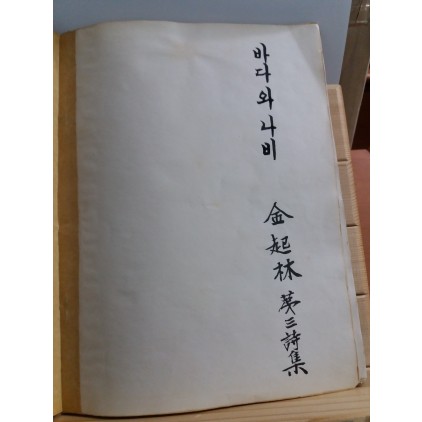 바다와 나비
金起林 第三詩集